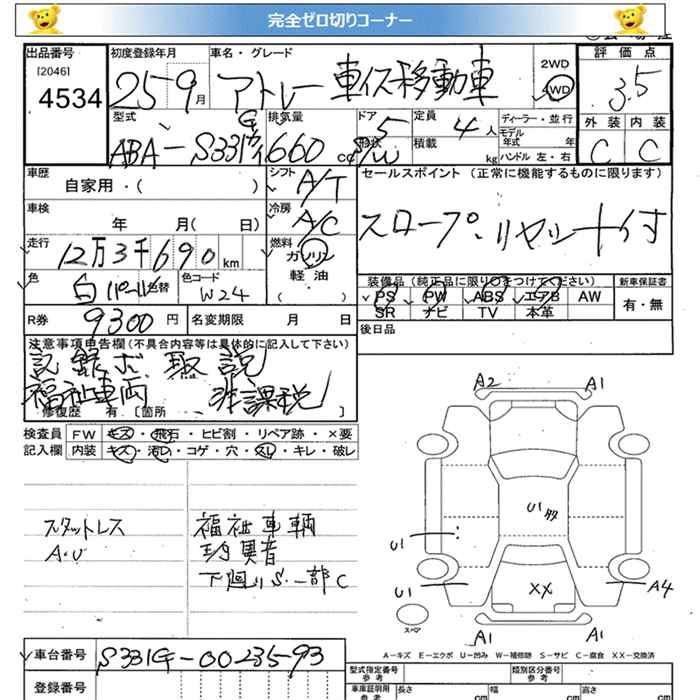 完全ゼロ切りコーナー
出品番号
[2046]
4534
初度登録年月
25-9月
車名・グレード
アトレー 車イス移動車
2WD
4WD
評価点
3.5
外装 内装
C C
型式
ABA-S331G
排気量
660 cc
ドア
5
形状
S/W
定員
4人
積載
kg
ディーラー・並行
モデル年式 年
ハンドル 左・右
車歴
自家用・( )
シフト
A/T
車検
年 月( 日)
冷房
A/C
走行
12万3千690km
燃料
ガソリン
軽油
( )
色
白パール
色替
色コード
W24
R券
9300円
名変期限 月 日
セールスポイント (正常に機能するものに限ります)
スロープ、リヤシート付
装備品 (純正品に限り○をつけてください)
PS PW ABS エアB AW
SR ナビ TV 本革
新車保証書
有・無
後日品
注意事項申告欄(不具合内容等は具体的に記入して下さい)
記録ボ 取説
福祉車両 非課税
修復歴 有.〔箇所 〕
検査員
記入欄
FW キズ・飛石・ヒビ割・リペア跡・×要
内装 キズ・汚レ・コゲ・穴・スレ・キレ・破レ
スタットレス
福祉車輌
異音
下廻りS・一部C
A2 A1
U1
U1
U1
XX
A4
A1 A1
スペア
A-キズ E-エクボ U-凹み W-補修跡 S-サビ C-腐食 XX-交換済
車台番号
S331G-0023593
登録番号
型式指定番号
類別区分番号
車庫証明用
参考
長さ cm
幅 cm
高さ cm